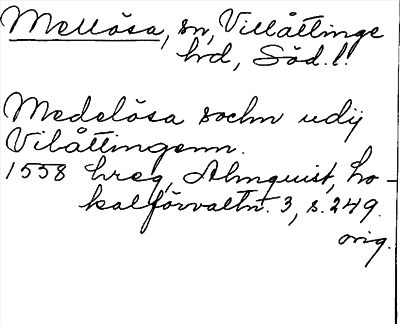 Mellösa, sn, Villåttinge
hrd, Söd.l.
Medelösa sochn udij
Vilåttingenn.
1558 hreg, Almquist, Lo-
kalförvaltn. 3, s. 249.
orig.